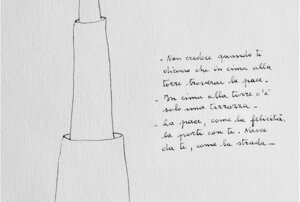 - Non credere quando ti
dicono che in cima alla
torre troverai la pace.
- In cima alla torre c'è
solo una terrazza -
- La pace, come la felicità,
la porti con te. Nasce
da te, come la strada -